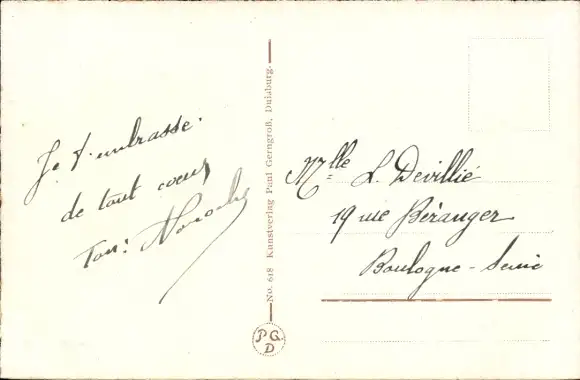 Je t'embrasse.
de tout coeur
Ton:
No. 618 Kunstverlag Paul Gerngroß, Duisburg.
PGD
Mlle L. Devillié
19 rue Béranger
Boulogne-Seine